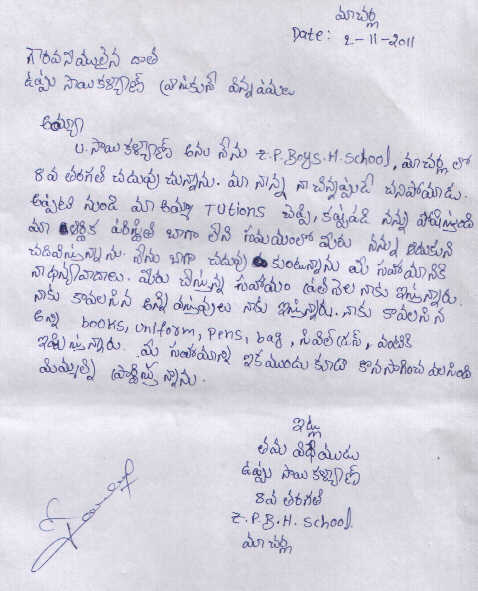 మాచర్ల
Date: 2-11-2011
గౌరవనీయులైన దాత
ఉప్పు సాయికళ్యాణ్ వ్రాసుకునే విన్నపములు
అయ్యా
U. సాయికళ్యాణ్ అను నేను Z.P.Boys.H.School, మాచర్ల లో
8వ తరగతి చదువు చున్నాను. మా నాన్న నా చిన్నప్పుడే చనిపోయాడు.
అప్పటి నుండి మా అమ్మ Tutions చెప్పి, కష్టపడి నన్ను పోషిస్తుంది
మా ఆర్థిక పరిస్థితి బాగా లేని సమయంలో మీరు నన్ను ఆదుకుని
చదివిస్తున్నారు. నేను బాగా చదువు కుంటున్నాను మీ సహాయానికి
నా ధన్యవాదాలు. మీరు చేస్తున్న సహాయం ప్రతి నెల నాకు ఇస్తున్నారు.
నాకు కావలసిన అన్ని వస్తువులు నాకు ఇస్తున్నారు. నాకు కావలసిన
అన్ని books, uniform, pens, bag, సివిల్ డ్రస్, వంటివి
ఇప్పిస్తున్నారు. మీ సహాయాన్ని ఇకముందు కూడా కొనసాగించ వలసింది
మిమ్మల్ని ప్రార్థిస్తున్నాను.
ఇట్లు
తమ విధేయుడు
ఉప్పు సాయి కళ్యాణ్
8వ తరగతి
Z.P.B.H. School.
మాచర్ల